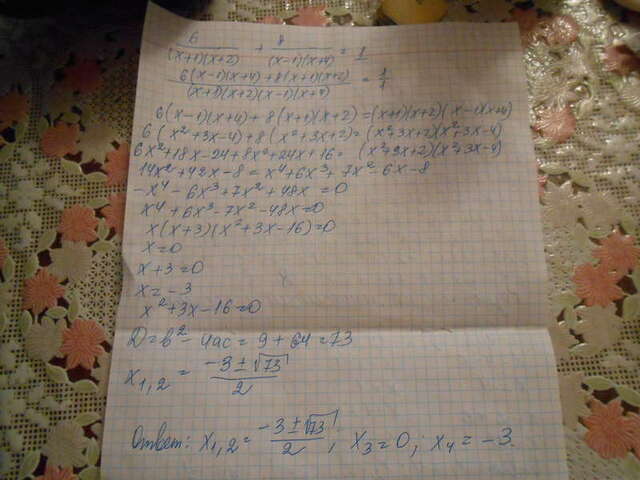 6/((x+1)(x+2)) + 8/((x-1)(x+4)) = 1
(6(x-1)(x+4)+8(x+1)(x+2))/((x+1)(x+2)(x-1)(x+4)) = 1/1
6(x-1)(x+4)+8(x+1)(x+2)=(x+1)(x+2)(x-1)(x+4)
6(x²+3x-4)+8(x²+3x+2)=(x²+3x+2)(x²+3x-4)
6x²+18x-24+8x²+24x+16=(x²+3x+2)(x²+3x-4)
14x²+42x-8=x⁴+6x³+7x²-6x-8
-x⁴-6x³+7x²+48x=0
x⁴+6x³-7x²-48x=0
x(x+3)(x²+3x-16)=0
x=0
x+3=0
x=-3
x²+3x-16=0
D=b²-4ac=9+64=73
x₁,₂ = (-3±√73)/2
Ответ: x₁,₂ = (-3±√73)/2; x₃=0; x₄=-3.